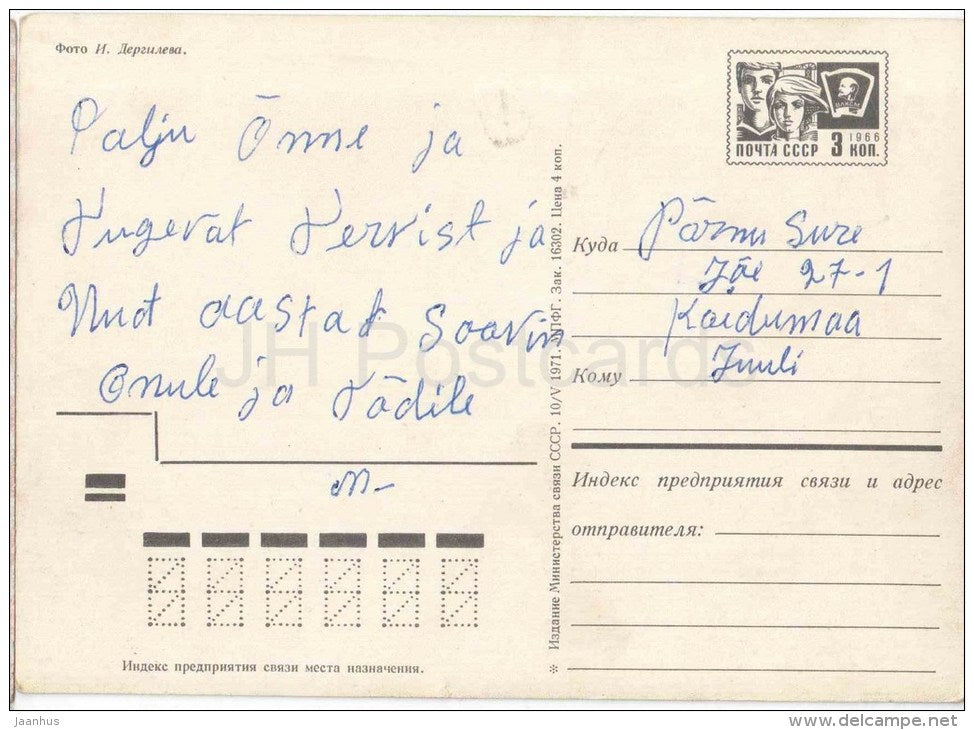 Фото И. Дергилева.
Palju Õnne ja
Tugevat Tervist ja
Uut aastat Soovin
Onule ja Tädile
M-
ВЛКСМ
1966
ПОЧТА СССР 3 КОП.
Издание Министерства связи СССР. 10/V 1971. МПФГ. Зак. 16302. Цена 4 коп.
Куда Pärnu Sure
Jõe 27-1
Koidumaa
Кому Juuli
Индекс предприятия связи и адрес
отправителя:
Индекс предприятия связи места назначения.
JH Postcards
jaanhus
www.delcampe.net